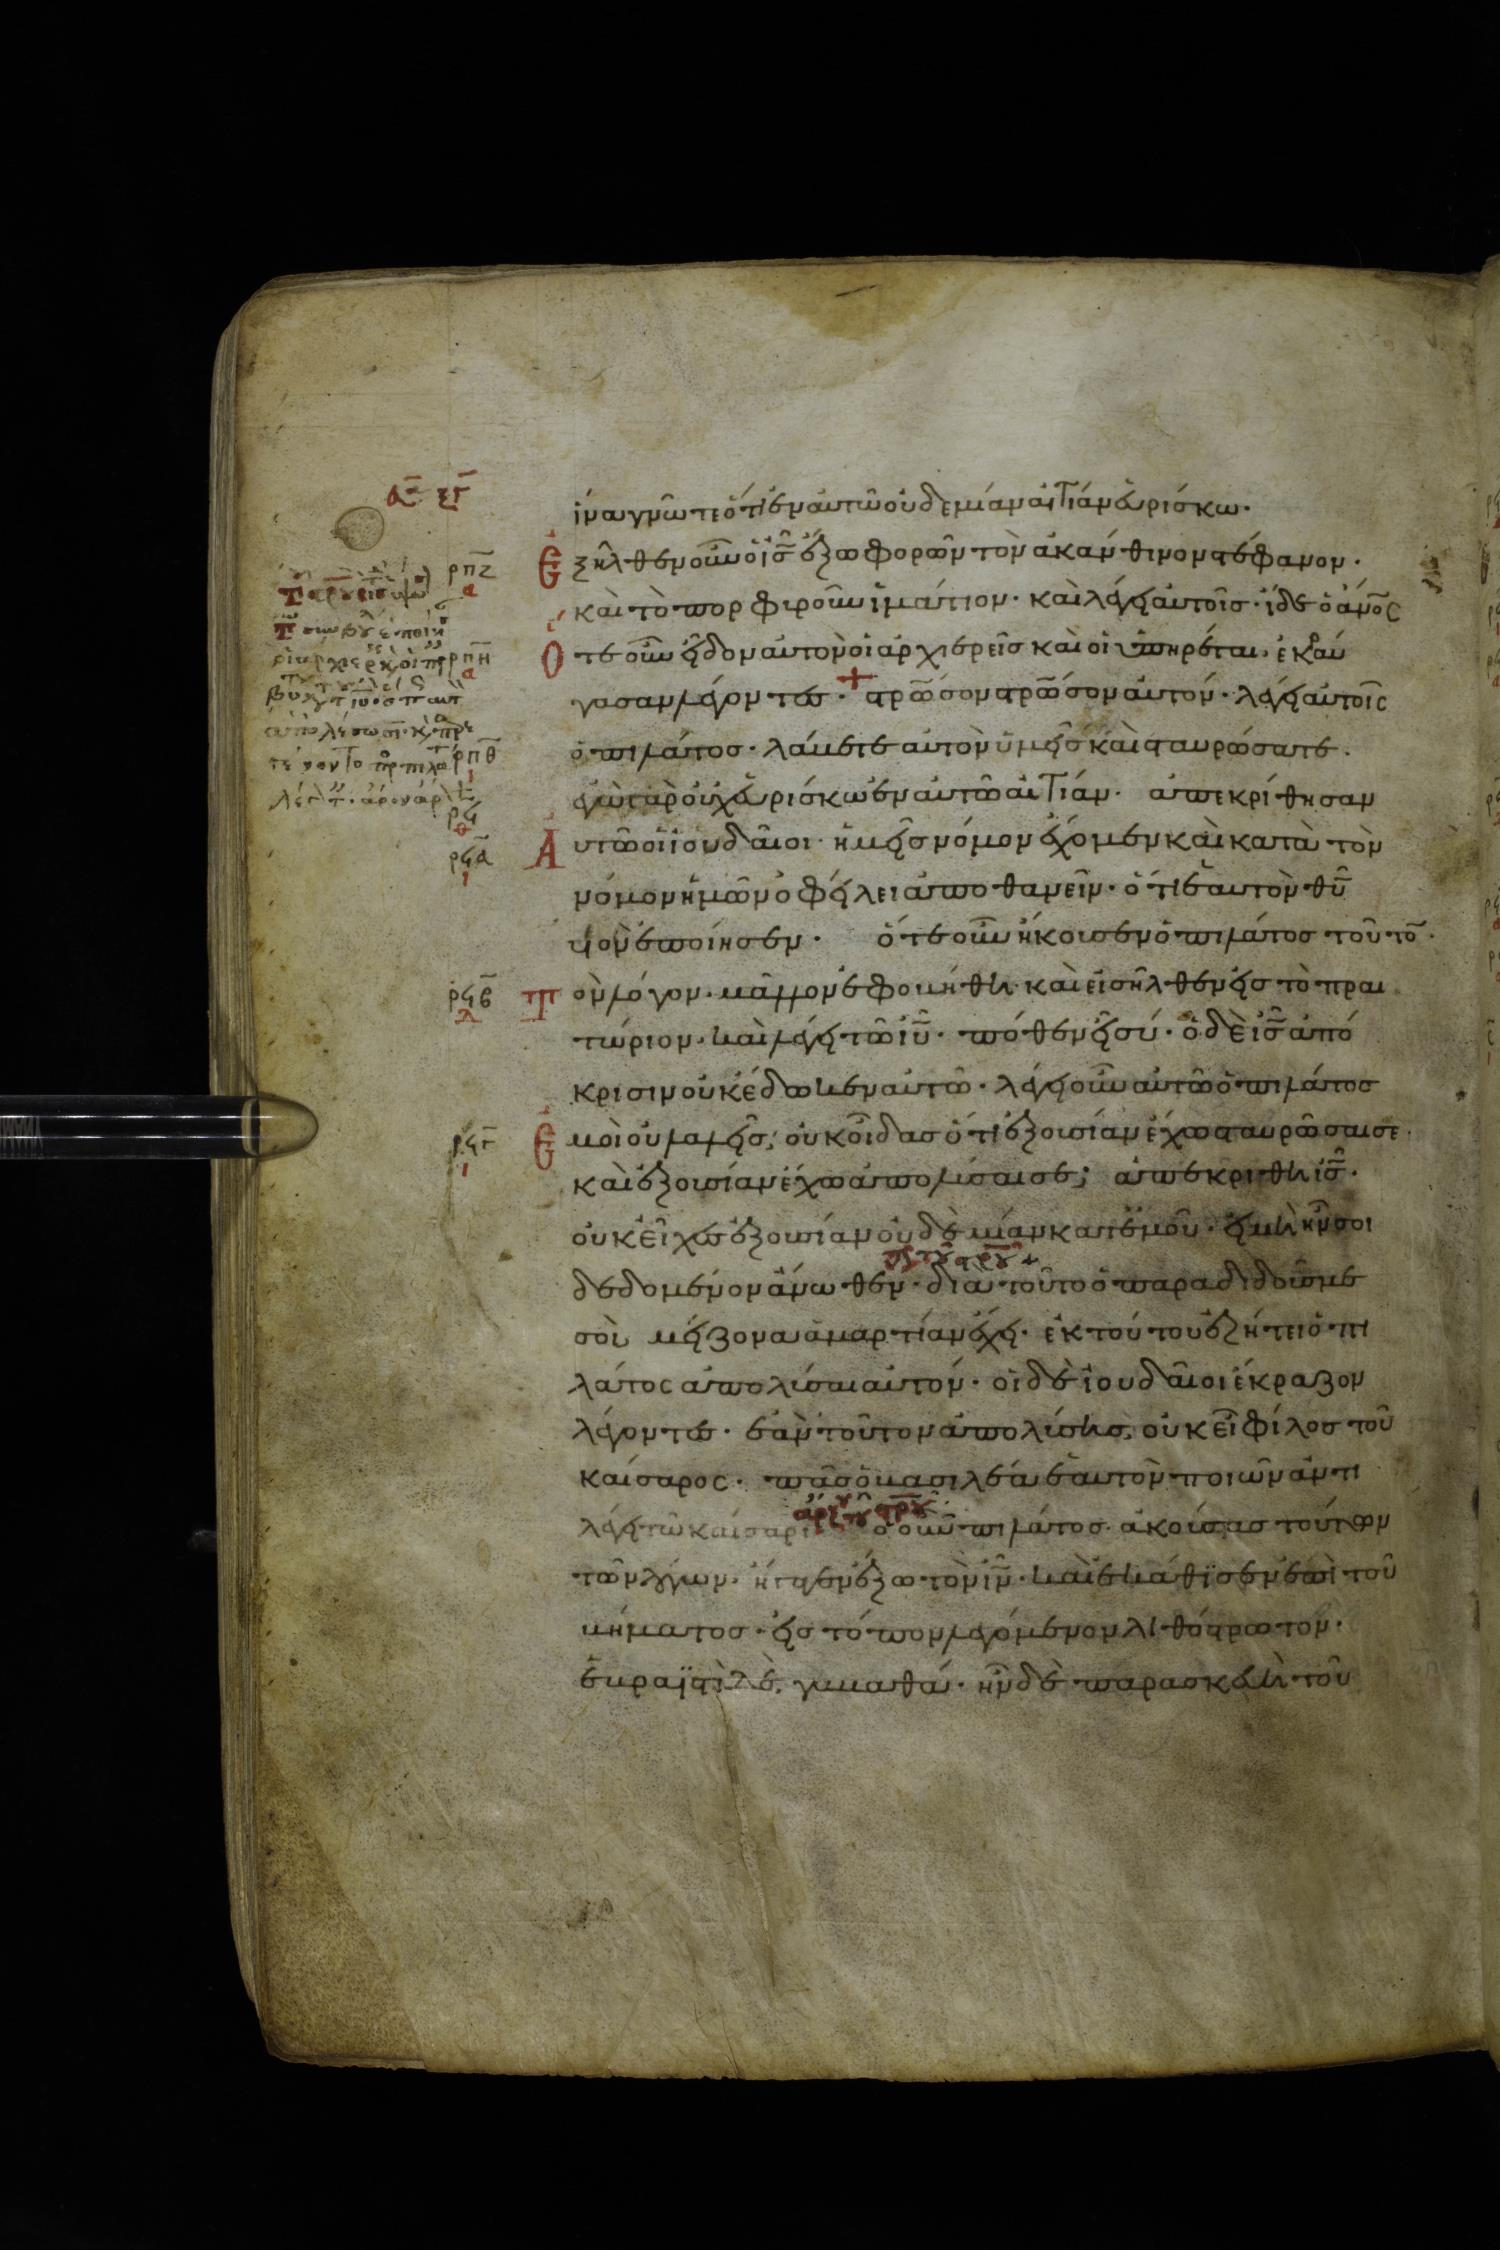 ἵνα γνῶτε ὅτι ἐν αὐτῶ οὐδεμίαν αἰτίαν εὑρίσκω·
Ἐξῆλθεν οὖν ὁ ἰς̅ ἔξω φορῶν τὸν ἀκάνθινον στέφανον·
καὶ τὸ πορφυροῦν ἱμάτιον· καὶ λέγει αὐτοῖς· ἴδε ὁ ἄνος̅
Ὅτε οὖν εἶδον αὐτὸν οἱ ἀρχιερεῖς καὶ οἱ ὑπηρέται, ἐκραύ
γασαν λέγοντες· στρωσον στρωσον αὐτόν· λέγει αὐτοῖς
ὁ πιλάτος· λάβετε αὐτὸν ὑμεῖς καὶ σταυρώσατε·
ἐγὼ γὰρ οὐχ εὑρίσκω ἐν αὐτῶ αἰτίαν· ἀπεκρίθησαν
Αὐτῶ οἱ ἰουδαῖοι· ἡμεῖς νόμον ἔχομεν καὶ κατὰ τὸν
νόμον ἡμῶν ὀφείλει ἀποθανεῖν· ὅτι ἑαυτὸν θυ̅
υἱὸν ἐποίησεν· ὅτε οὖν ἤκουσεν ὁ πιλάτος τοῦτο
Τὸν λόγον· μᾶλλον ἐφοβήθη· καὶ εἰσῆλθεν εἰς τὸ πραι
τώριον· καὶ λέγει τῶ ἰυ̅· πόθεν εἶ σύ· ὁ δὲ ἰς̅ ἀπό
κρισιν οὐκ ἔδωκεν αὐτῶ· λέγει οὖν αὐτῶ ὁ πιλάτος
Ἐμοὶ οὐ λαλεῖς; οὐκ οἶδας ὅτι ἐξουσίαν ἔχω σταυρῶσαι σε·
καὶ ἐξουσίαν ἔχω ἀπολύσαι σε; ἀπεκρίθη ἰς̅·
οὐκ εἶχες ἐξουσίαν οὐδὲ μίαν κατ' ἐμοῦ· εἰ μὴ ἦν σοι
δεδομένον ἄνωθεν· διὰ τοῦτο ὁ παραδιδούς με
σοὶ μείζονα ἁμαρτίαν ἔχει· ἐκ τούτου ἐζήτει ὁ πι
λάτος ἀπολύσαι αὐτόν· οἱ δὲ ἰουδαῖοι ἔκραζον
λέγοντες· ἐὰν τοῦτον ἀπολύσης, οὐκ εἶ φίλος τοῦ
καίσαρος· πᾶς ὁ βασιλέα ἑαυτὸν ποιῶν ἀντι
λέγει τῶ καίσαρι ὁ οὖν πιλάτος ἀκούσας τούτων
τῶν λόγων· ἤγαγεν ἔξω τὸν ἰν̅· καὶ ἐκάθισεν ἐπὶ τοῦ
βήματος· εἰς τόπον λεγόμενον λιθόστρωτον·
ἑβραϊστὶ δὲ, γαβαθά· ἦν δὲ παρασκευὴ τοῦ
ρπζ
α
ρπη
α
ρπθ
ι
ρϟ
ρϟα
ι
ρϟβ
ρϟγ
ι